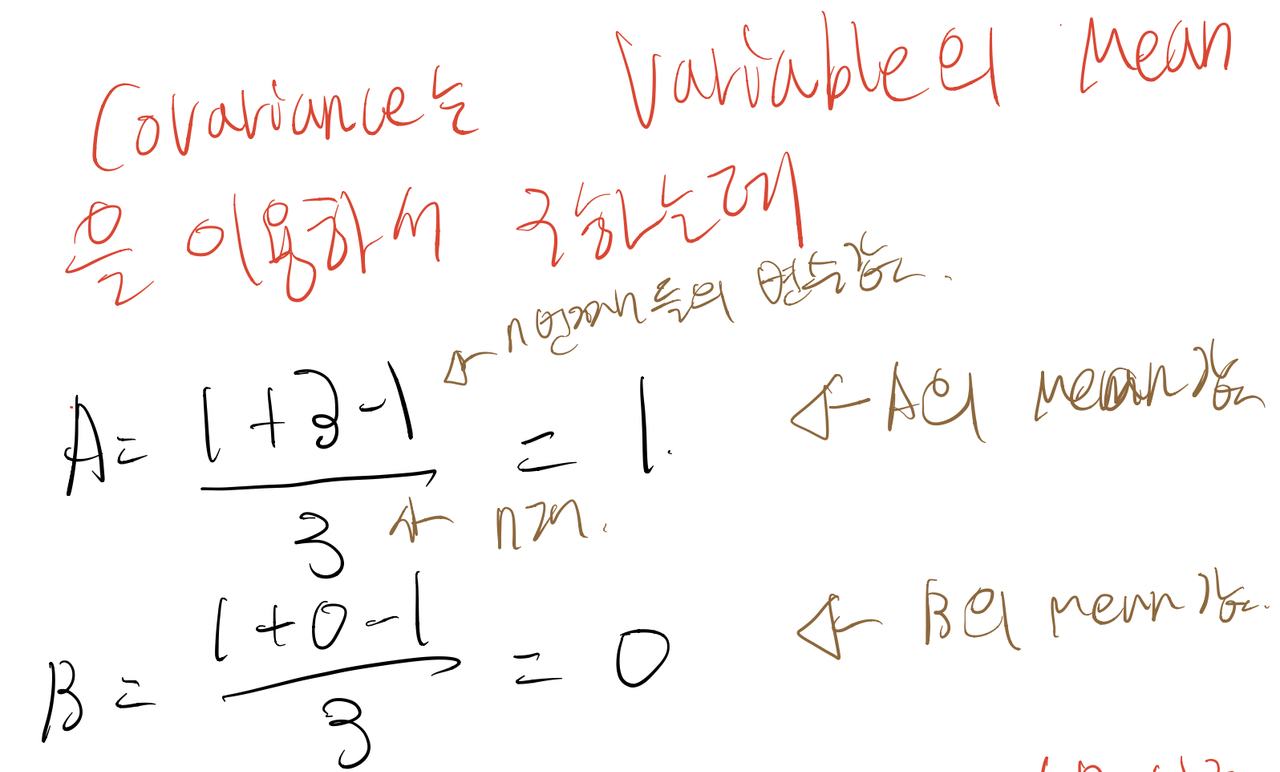 Covariance는 Variable의 Mean
을 이용하서 구하는데
n번째들의 변수값.
A = 1+3-1 / 3 = 1. ← A의 mean값
← n개.
B = 1+0-1 / 3 = 0 ← B의 mean값.